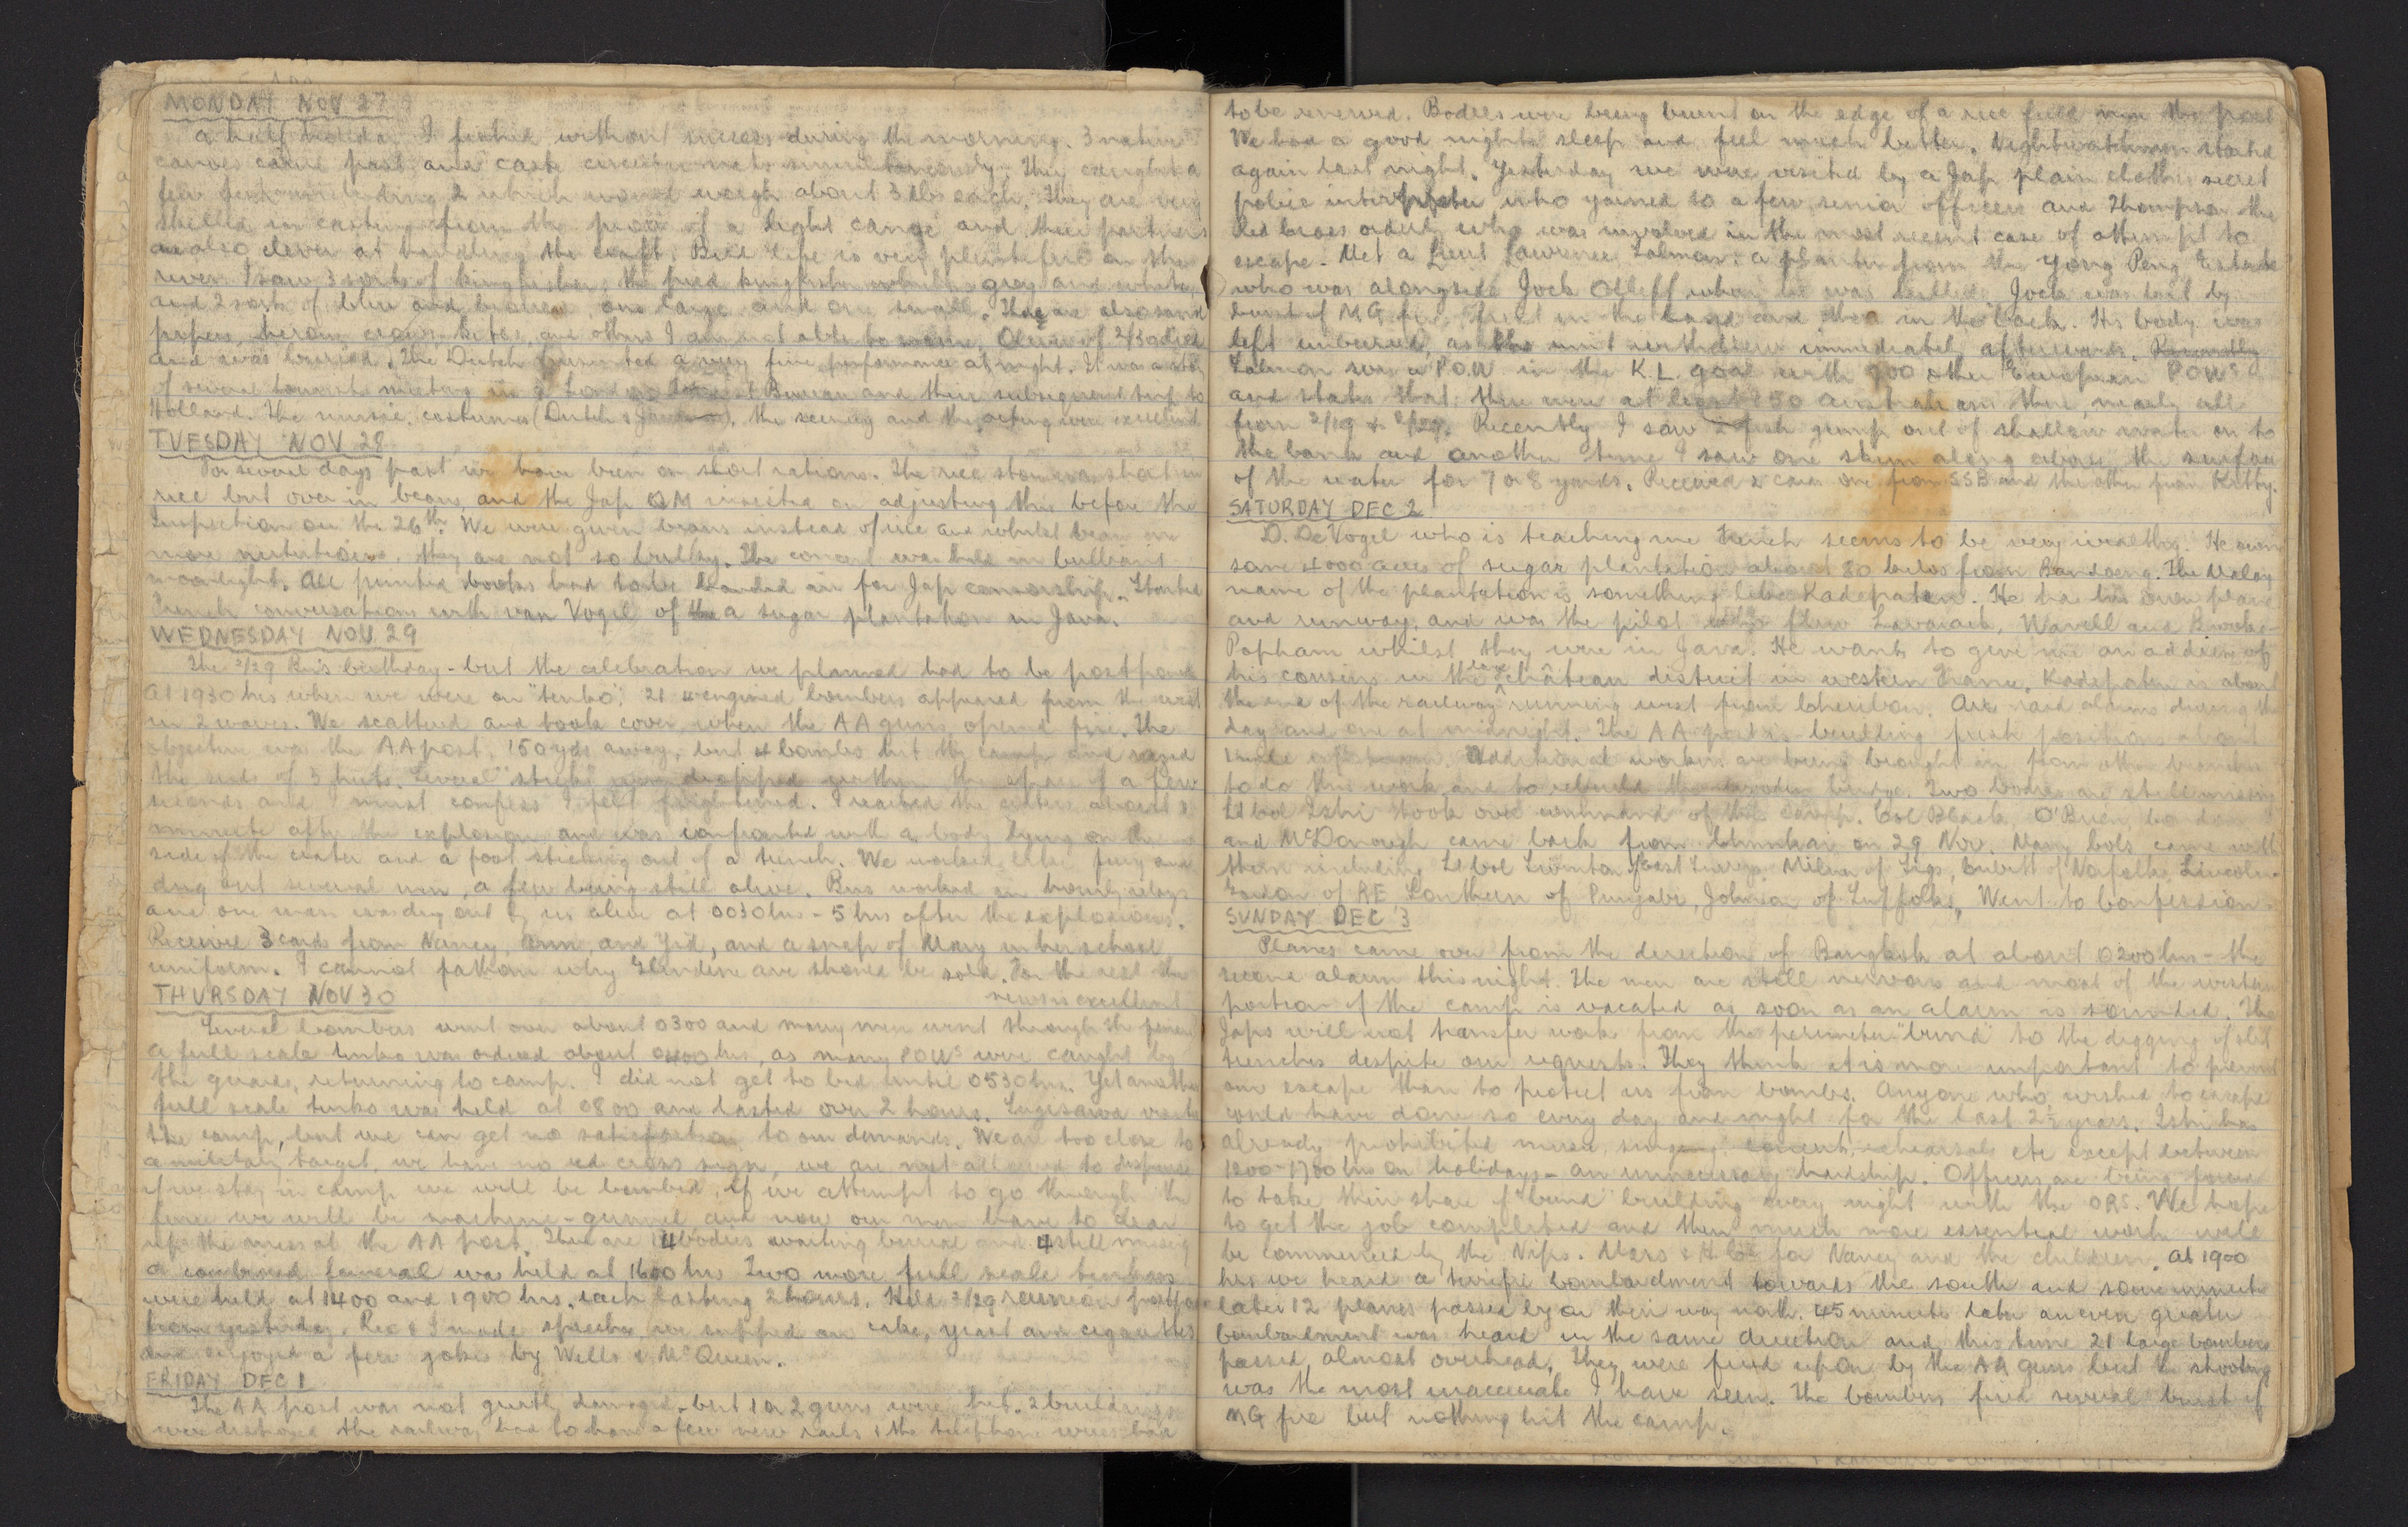 MONDAY NOV 27
A half holiday. I fished without success during the morning. 3 native
canoes came past and cast circular nets simultaneously. They caught a
few fish including 2 which would weigh about 3 lbs each. They are very
skilled in casting from the prow of a light canoe and their partners
are also clever at handling the craft. Bird life is very plentiful on the
river. I saw 3 sorts of kingfisher, the pied kingfisher which is grey and white,
and 2 sorts of blue and brown, one large and one small. There are also sand
pipers, herons, crows, kites, and others I am not able to name. of 2/30 died
and was buried. The Dutch presented a very fine performance at night. It was a story
of several tourists meeting in a London Tourist Bureau and their subsequent trip to
Holland. The music, costumes (Dutch & ), the scenery and the acting were excellent
TUESDAY NOV 28
For several days past we have been on short rations. The rice store was short in
rice but over in beans, and the Jap QM insisted on adjusting this before the
Inspection on the 26th. We were given beans instead of rice and whilst beans are
more nutritious, they are not so bulky. The concert was held in brilliant
moonlight. All printed books had to be handed in for Jap censorship. Started
French conversations with van Vogel of the a sugar plantation in Java.
WEDNESDAY NOV 29
The 2/29 Bn's birthday - but the celebration we planned had to be postponed
At 1930 hrs when we were on "tenko", 21 4 engined bombers appeared from the west
in 2 waves. We scattered and took cover when the AA guns opened fire. The
objective was the AA post, 150 yds away, but 4 bombs hit the camp and razed
the ends of 3 huts. Several "sticks" were dropped within the space of a few
seconds and I must confess I felt frightened. I reached the craters about a
minute after the explosion and was confronted with a body lying on the
side of the crater and a foot sticking out of a trench. We worked like fury and
dug out several men, a few being still alive. Bns worked in hourly relays
and one man was dug out by us alive at 0030 hrs - 5 hrs after the explosions.
Received 3 cards from Nancy, Ann, and Yid, and a snap of Mary in her school
uniform. I cannot fathom why Glendene ave should be sold. For the rest the
news is excellent
THURSDAY NOV 30
Several bombers went over about 0300 and many men went through the fence.
A full scale tenko was ordered about 0400 hrs, as many POWs were caught by
the guards, returning to camp. I did not get to bed until 0530 hrs. Yet another
full scale tenko was held at 0800 and lasted over 2 hours. Sugisawa visited
the camp, but we can get no satisfaction to our demands. We are too close to
a military target, we have no red cross sign, we are not allowed to disperse
if we stay in camp we will be bombed, if we attempt to go through the
fence we will be machine-gunned, and now our men have to clear
up the mess at the AA post. There are 14 bodies awaiting burial and 4 still missing
A combined funeral was held at 1600 hrs. Two more full scale tenkos
were held at 1400 and 1900 hrs, each lasting 2 hours. Held 2/29 reunion postponed
from yesterday. Rex & I made speeches, we supped on cake, yeast and cigarettes
and enjoyed a few jokes by Wells & McQueen.
FRIDAY DEC 1
The AA post was not greatly damaged, but 1 or 2 guns were hit. 2 buildings
were destroyed the railway had to have a few new rails & the telephone wires had
to be renewed. Bodies were being burnt on the edge of a rice field near the post
We had a good nights sleep and feel much better. Nightwatchmen started
again last night. Yesterday we were visited by a Jap plain clothes secret
police interpreter who yarned to a few senior officers and Thompson the
Red Cross orderly who was involved in the most recent case of attempt to
escape. Met a Lieut Lawrence Salmon, a planter from the Yong Peng Estate
who was alongside Jock Olleff when he was killed. Jock was shot by
burst of MG fire, first in the hand and then in the back. His body was
left unburied, as the unit withdrew immediately afterwards.
Salmon was a POW in the K.L. gaol with 900 other European POWs
and states that there were at least 150 Australians there, nearly all
from 2/19 & 2/29. Recently I saw 2 fish jump out of shallow water on to
the bank and another time I saw one skim along above the surface
of the water for 7 or 8 yards. Received 2 cards one from SSB and the other from Kitty.
SATURDAY DEC 2
D. De Vogel who is teaching me French seems to be very wealthy. He owns
some 4000 acres of sugar plantation about 80 kilos from Bandoeng. The Malay
name of the plantation is something like Kadepaten. He has his own plane
and runway, and was the pilot who flew Lavarack, Wavell and Brooke-
Popham whilst they were in Java. He wants to give me an address of
his cousins in the château district in western France. Kadepaten is about
the end of the railway running west from Cheribon. Air raid alarms during the
day and one at midnight. The AA post is building fresh positions about
1 mile. Additional workers are being brought in from other branches
to do this work and to rebuild the wooden bridge. Two bodies are still missing
Lt Col Ishi took over command of this camp. Col Black, O'Brien,
and McDonough came back from Chunkai on 29 Nov. Many Cols came with
them including Lt Col Swinton of East Surreys, Milner of Sigs, of Norfolks, Lincoln-
of RE, of Punjabi, Johnson of Suffolks. Went to Confession.
SUNDAY DEC 3
Planes came over from the direction of Bangkok at about 0200 hrs - the
second alarm this night. The men are still nervous and most of the western
portion of the camp is vacated as soon as an alarm is sounded. The
Japs will not transfer work from the perimeter "bund" to the digging of slit
trenches despite our requests. They think it is more important to prevent
our escape than to protect us from bombs. Anyone who wished to escape
could have done so every day and night for the last 2½ years. Ishi has
already prohibited music, singing, concert, rehearsals etc except between
1200-1700 hrs on holidays - an unnecessary hardship. Officers are being forced
to take their share of "bund" building every night with the ORS. We hope
to get the job completed and then much more essential work will
be commenced by the Nips. Mass & H.C. for Nancy and the children. At 1900
hrs we heard a terrific bombardment towards the south and some minutes
later 12 planes passed by on their way north. 45 minutes later an even greater
bombardment was heard in the same direction and this time 21 large bombers
passed almost overhead. They were fired upon by the AA guns but the shooting
was the most inaccurate I have seen. The bombers fired several burst of
MG fire but nothing hit the camp.